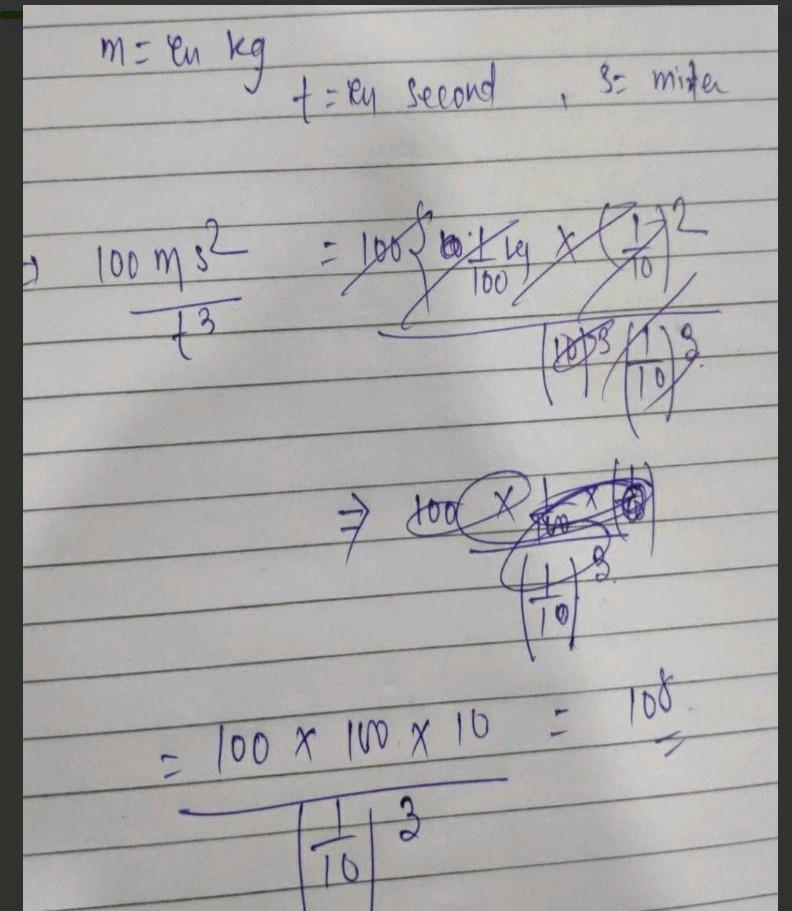 m = in kg
t = in second , s = miter
⇒ 100 m s² / t³ = 100 1/100 kg × (1/10)² / (10)³ (1/10)³
⇒ 100 × 1/100 × / (1/10)³
= 100 × 100 × 10 / (1/10)³ = 10⁸